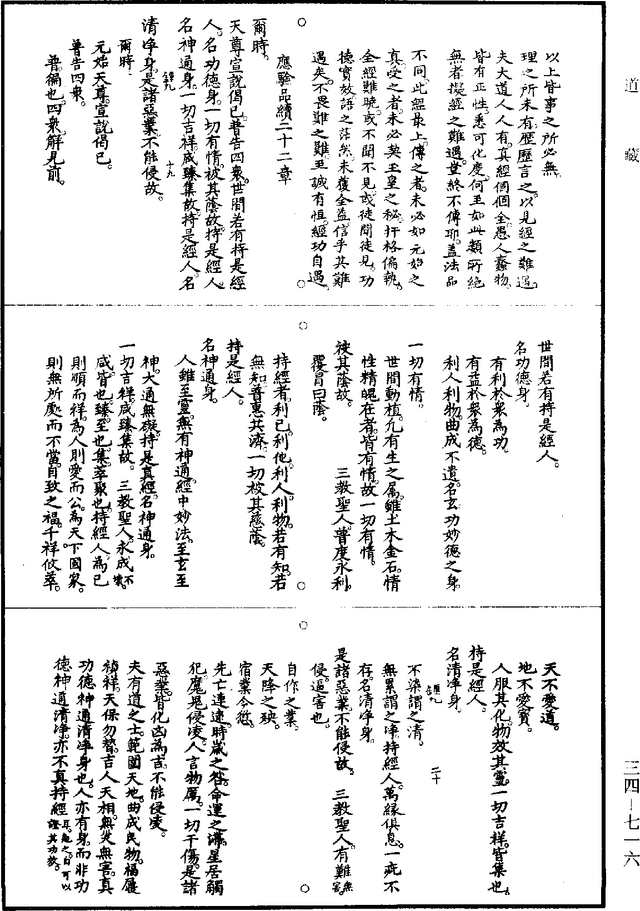 道藏
以上皆事之所必無
理之所未有歷歷言之以見經之難遇
夫大道人人有真經個個全愚人蠢物
皆有正性悉可化度何至如此類所絕
無者擬經之難遇豈終不傳耶蓋法品
不同此經最上傳之者未必如元始之
真受之者未必契玉皇之秘扞格偏執
全經雖曉或不聞不見或徒聞徒見功
德實效語之茫然未獲全益信乎其難
遇矣不畏難之難至誠有恒經功自遇
應驗品續二十二章
爾時
天尊宣說偈已普告四衆世間若有持是經
人名功德身一切有情被其蔭故持是經人
名神通身一切吉祥咸臻集故持是經人名
清淨身是諸惡業不能侵故
爾時
元始天尊宣說偈已
普告四衆
普徧也四衆解見前
十九
世間若有持是經人
名功德身
有利於衆為功
有益於衆為德
利人利物曲成不遺名玄功妙德之身
一切有情
世間動植凡有生之屬雖土木金石情
性精魄在者皆有情故一切有情
被其蔭故 三教聖人普度永利
覆冒曰蔭
持經者利己利他利人利物若有知若
無知普惠共濟一切被其蔭
持是經人
名神通身
人雖至靈無有神通經中妙法至玄至
神大通無礙持是真經名神通身
一切吉祥咸臻集故 三教聖人永成不壞
咸皆也臻至也集萃聚也持經人為已
則順而祥為人則愛而公為天下國家
則無所處而不當自致之福千祥攸萃
天不愛道
地不愛寶
人服其化物效其靈一切吉祥皆集也
持是經人
名清淨身
不染謂之清
無累謂之淨持經人萬緣俱息一疵不
存名清淨身
二十
是諸惡業不能侵故 三教聖人有難無害
侵逼害也
自作之業
天降之殃
宿業今愆
先亡連逮時歲之咎命運之滯星居觸
犯魔鬼侵凌人言物厲一切干傷是諸
惡業皆化凶為吉不能侵凌
夫有道之士範圍天地曲成民物福履
禎祥天保勿替吉人天相無災無害真
功德神通清淨身也人亦有身而非功
德神通清淨亦不真持經
三四—七一六